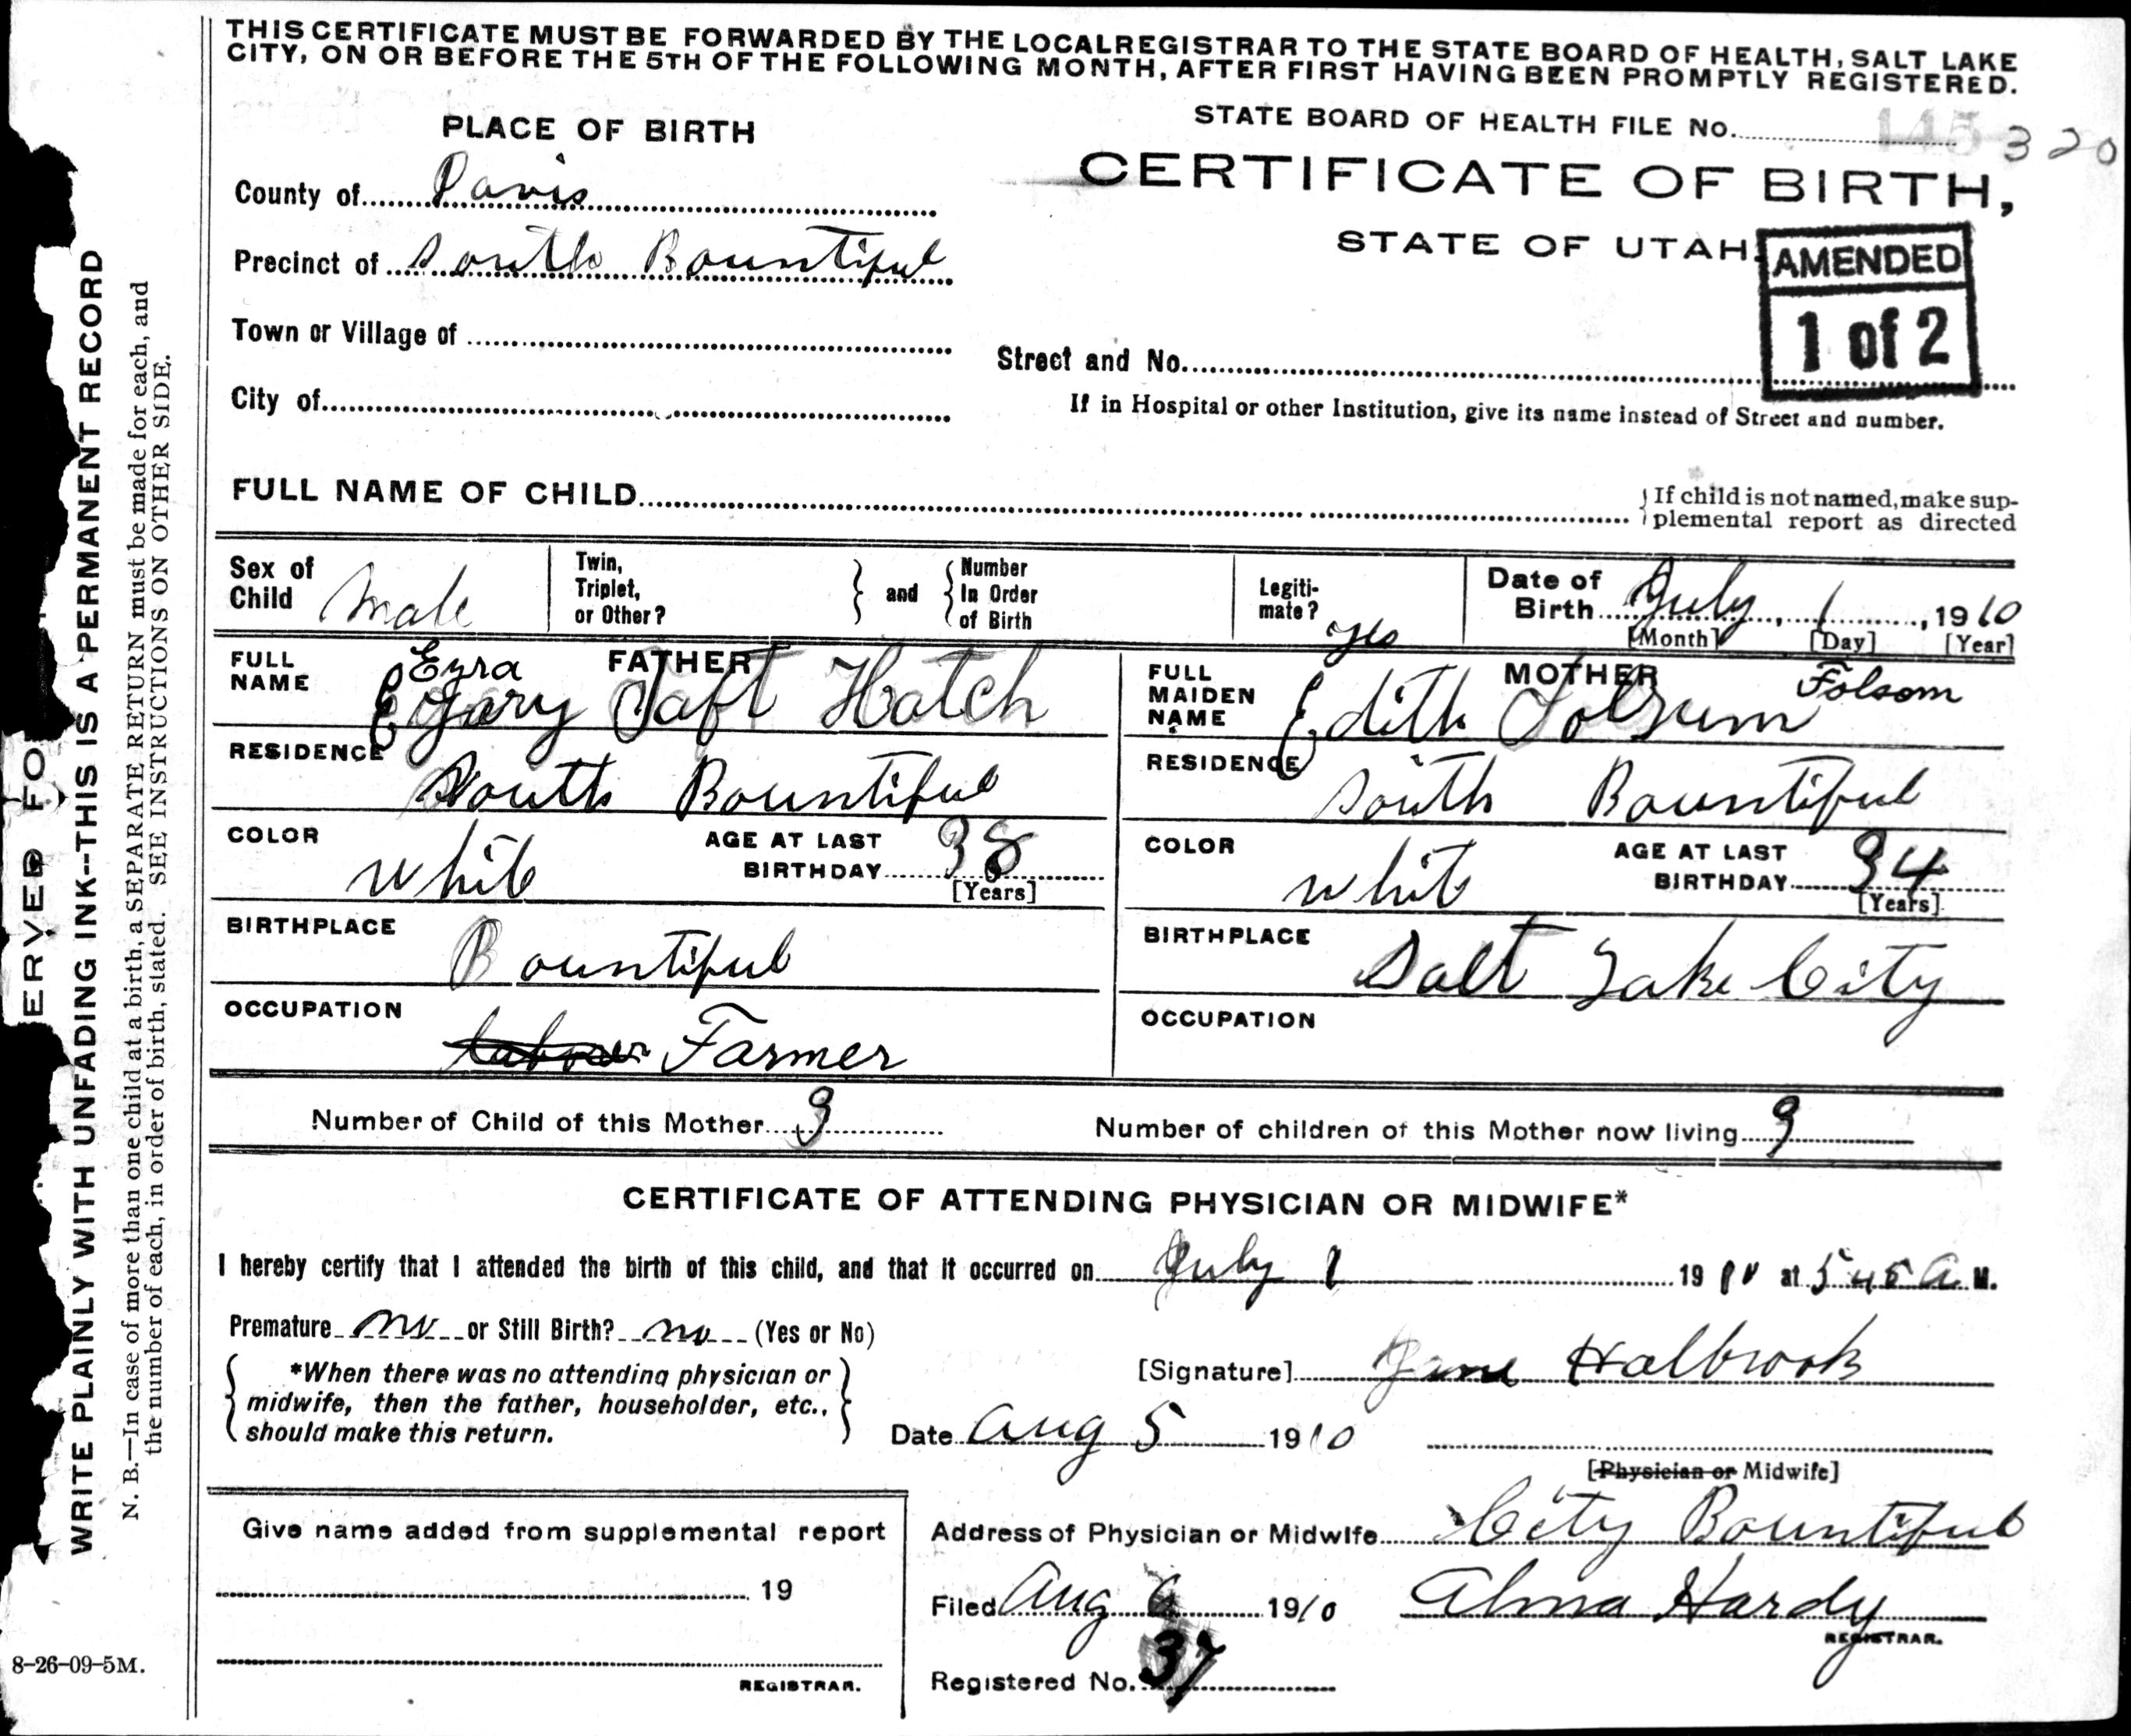 THIS CERTIFICATE MUST BE FORWARDED BY THE LOCAL REGISTRAR TO THE STATE BOARD OF HEALTH, SALT LAKE
CITY, ON OR BEFORE THE 5TH OF THE FOLLOWING MONTH, AFTER FIRST HAVING BEEN PROMPTLY REGISTERED.
PLACE OF BIRTH
STATE BOARD OF HEALTH FILE No. 145 320
CERTIFICATE OF BIRTH,
STATE OF UTAH.
AMENDED
1 of 2
County of Davis
Precinct of South Bountiful
Town or Village of
Street and No.
City of
If in Hospital or other Institution, give its name instead of Street and number.
FULL NAME OF CHILD
If child is not named, make sup-
plemental report as directed
Sex of Child Male
Twin, Triplet, or Other?
and
Number In Order of Birth
Legiti-mate? yes
Date of Birth July, 1, 1910
[Month] [Day] [Year]
FATHER
FULL NAME Ezra Taft Hatch
RESIDENCE South Bountiful
COLOR white
AGE AT LAST BIRTHDAY 38
[Years]
BIRTHPLACE Bountiful
OCCUPATION labourer Farmer
MOTHER
FULL MAIDEN NAME Edith Folsum Folsom
RESIDENCE South Bountiful
COLOR whit
AGE AT LAST BIRTHDAY 34
[Years]
BIRTHPLACE Salt Lake City
OCCUPATION
Number of Child of this Mother 9
Number of children of this Mother now living 9
CERTIFICATE OF ATTENDING PHYSICIAN OR MIDWIFE*
I hereby certify that I attended the birth of this child, and that it occurred on July 1 1910 at 5 45 A. M.
Premature no or Still Birth? no (Yes or No)
*When there was no attending physician or
midwife, then the father, householder, etc.,
should make this return.
[Signature] Jane Halbrook
Date Aug 5 1910
[Physician or Midwife]
Give name added from supplemental report
19
REGISTRAR.
Address of Physician or Midwife City Bountiful
Filed Aug 6 1910 Alma Hardy
REGISTRAR.
Registered No. 37
8-26-09-5M.
ERVED FO
WRITE PLAINLY WITH UNFADING INK--THIS IS A PERMANENT RECORD
N. B.—In case of more than one child at a birth, a SEPARATE RETURN must be made for each, and
the number of each, in order of birth, stated. SEE INSTRUCTIONS ON OTHER SIDE.